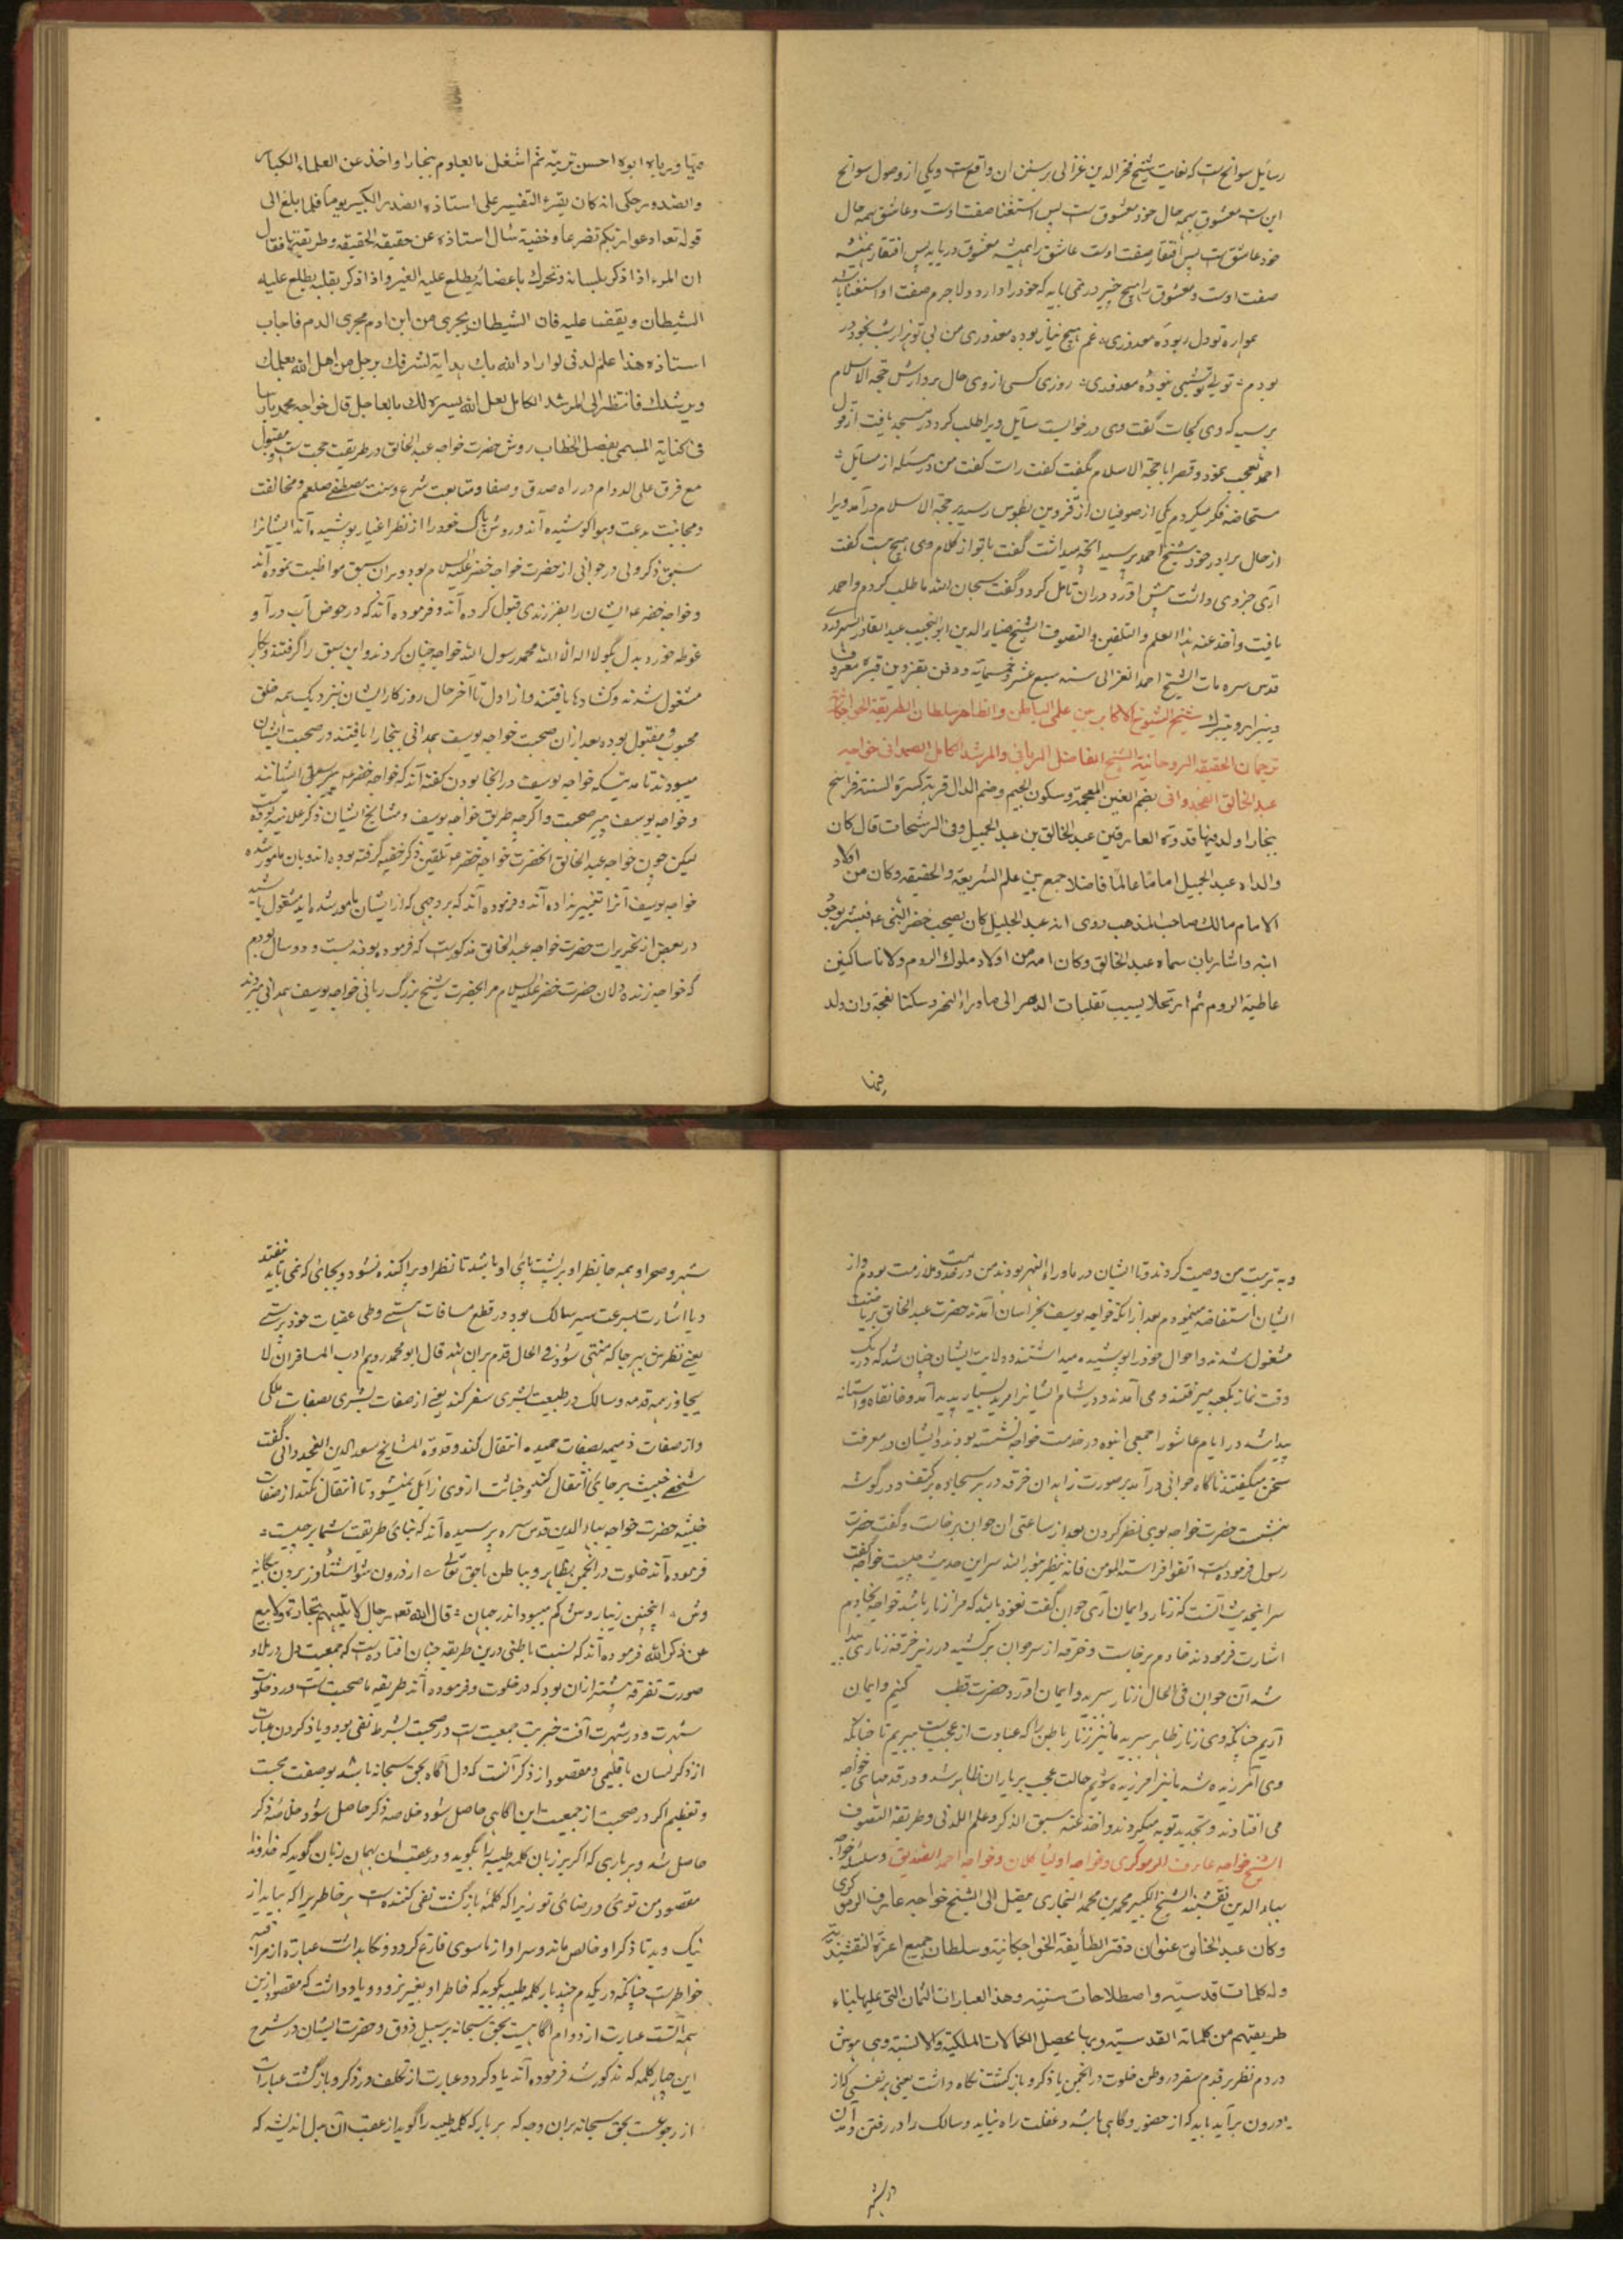 رسایل سوانح است که بغایت شیخ فخرالدین غزالی بر سنن ان واقع است ویکی از وصول سوانح
این ست معشوق بهمه حال خود معشوق ست پس استغنا صفت اوست وعاشق بهمه حال
خود عاشق ست پس افتقار صفت اوست عاشق را همیشه معشوق درباید پس افتقار همیشه
صفت اوست ومعشوق را هیچ چیز در نمی باید که خود را دارد ولاجرم صفت او استغنا باشد
همواره تو دل ربوده معذوری غم هیچ نیازموده معذوری من بی تو هزار شب بخون در
بودم تو بی تو شبی نبوده معذوری روزی کسی از وی حال برادرش حجة الاسلام
پرسید که وی کجاست گفت وی در خونست سایل ویرا طلب کرد در مسجد یافت از قول
احمد تعجب نمود وقصه را با حجة الاسلام بگفت گفت راست گفت من در مسئله از مسایل
مستحاضه فکر میکردم یکی از صوفیان از قزوین بطوس رسید بر حجة الاسلام در آمد ویرا
از حال برادر خود شیخ احمد پرسید انچه میدانست گفت با تو از کلام وی هیچ هست گفت
آری جزوی داشت پیش آورد دران تامل کرد وگفت سبحان الله ما طلب کردم واحمد
یافت واخذ عنه هذا العلم والتلقین والتصوف الشیخ ضیاء الدین ابو النجیب عبد القادر السهروردی
قدس سره مات الشیخ احمد الغزالی سنه سبع عشر وخمسمایة ودفن بقزوین قبره معروف
ویزار ویتبرك شیخ الشیوخ الاکابر بین علمی الباطن والظاهر سلطان الطریقة الخواجکانیة
ترجمان الحقیقة الروحانیة الشیخ الفاضل الربانی والمرشد الکامل الصمدانی خواجه
عبد الخالق الغجدوانی بضم الغین المعجمة وسکون الجیم وضم الدال قریة کسرة السنة فراسخ
بخارا ولد فیها قدوة العارفین عبد الخالق بن عبد الجمیل وفی الرشحات قال کان
والداه عبد الجمیل اماما عالما فاضلا جمع بین علم الشریعة والحقیقه وکان من اولاد
الامام مالك صاحب المذهب روی انه عبد الجلیل کان یصحب خضر النبی عم فبشر بوجود
ابنه واشار بان سماه عبد الخالق وکان امه من اولاد ملوك الروم ولانا ساکنین
عاطیة الروم ثم ارتحلا بسبب تقلبات الدهر الی ماوراء النهر وسکنا بغجدوان ولد
فیها
فیها ورباه ابوه احسن تربیة ثم اشتغل بالعلوم ببخارا واخذ عن العلماء الکبار
والصدور حکی انه کان یقرء التفسیر علی استاذه الصدر الکبیر یوما فلما بلغ الی
قوله تعه ادعوا ربکم تضرعا وخفیة سأل استاذه عن حقیقة الحقیقه وطریقتها فقال
ان المرء اذا ذکر بلسانه وتحرك باعضائه یطلع علیه الغیر واذا ذکر بقلبه یطلع علیه
الشیطان ویقف علیه فان الشیطان یجری من ابن ادم مجری الدم فاجاب
استاذه هذا علم لدنی لو اراد الله بك بدایة لشرفك برجل من اهل الله یعلمك
ویرشدك فانتظر الی المرشد الکامل لعل الله یسره لك بالعاجل قال خواجه محمد پارسا
فی کتابه المسمی بفصل الخطاب روش حضرت خواجه عبد الخالق در طریقت حجت ست ومقبول
مع فرق علی الدوام در راه صدق وصفا ومتابعت شرع وسنت مصطفی صلعم ومخالفت
ومجانبت بدعت وهوا کوشیده آند وروش پاک خود را از نظر اغیار پوشیده آند ایشانرا
سبق ذکر ولی در جوانی از حضرت خواجه خضر علیه السلام بود وبران سبق مواظبت نموده آند
وخواجه خضر عم ایشان را بفرزندی قبول کرده آند وفرموده آند که در حوض آب در آ و
غوطه خور و بدل بگو لا اله الا الله محمد رسول الله خواجه چنان کردند واین سبق را گرفتند وبکار
مشغول شدند وکشادها یافتند واز اول تا آخر حال روزکار ایشان بنزدیک همه خلق
محبوب ومقبول بوده بعد ازان صحبت خواجه یوسف همدانی ببخارا یافتند در صحبت ایشان
میبودند تا مدتیکه خواجه یوسف در انجا بودن گفته آند که خواجه خضر عم پیر سبق ایشانند
وخواجه یوسف پیر صحبت واکرچه طریق خواجه یوسف ومشایخ ایشان ذکر علانیه بوده
لیکن چون خواجه عبد الخالق انحضرت خواجه خضر عم تلقین ذکر خفیه گرفته بوده اند وبان مامور شده
خواجه یوسف آنرا تغییر نداده آند وفرموده آند که بر وجهی که از ایشان مامور شده اید مشغول باشید
در بعض از تحریرات حضرت خواجه عبد الخالق مذکورست که فرمود بودند بیست و دو سال بودم
که خواجه زنده دلان حضرت خضر علیه السلام مرا بحضرت شیخ بزرگ ربانی خواجه یوسف همدانی سپردند
وبه تربیت من وصیت کردند وتا ایشان در ماوراء النهر بودند من در خدمت وملازمت بودم واز
ایشان استفاضه مینمودم بعد از انکه خواجه یوسف بخراسان آمدند حضرت عبد الخالق بریاضت
مشغول شدند واحوال خود را پوشیده میداشتند وولایت ایشان چنان شد که در یک
وقت نماز بکعبه میرفتند ومی آمدند ودر شام ایشانرا مرید بسیار پدید آمد وخانقاه وآستانه
پیدا شد در ایام عاشورا جمعی انبوه در خدمت خواجه نشسته بودند وایشان در معرفت
سخن میگفتند ناگاه جوانی در آمد بر صورت زاهدان خرقه در بر سجاده بر کتف ودر گوشه
بنشست حضرت خواجه بوی نظر کردن بعد از ساعتی ان جوان برخاست وگفت حضرت
رسول فرموده ست اتقوا فراسة المومن فانه ینظر بنور الله سر این حدیث چیست خواجه گفت
سر اینحدیث آنست که زنار وایمان آری جوان گفت نعوذ بالله که مرا زنار باشد خواجه بخادم
اشارت فرمودند خادم برخاست وخرقه از سر جوان برکشید در زیر خرقه زناری پیدا
شد آن جوان فی الحال زنار ببرید وایمان آورد حضرت قطب کنیم وایمان
آریم چنانکه وی زنار ظاهر ببرید ما نیز زنار باطن را که عبارت از عجب ست ببریم تا چنانکه
وی آمرزیده شد ما نیز امرزیده شویم حالت عجب بر یاران ظاهر شد ودر قدمهای خواجه
می افتادند وتجدید توبه میکردند واخذ عنه سبق الذکر وعلم اللدنی وطریقة التصوف
الشیخ خواجه عارف الریوکری وخواجه اولیا کلان وخواجه احمد الصدیق وسلسله خواجه
بهاء الدین نقشبند الشیخ الکبیر محمد بن محمد البخاری میقل الی الشیخ خواجه عارف الریوکری
وکان عبد الخالق عنوان دفتر الطائفة الخواجکانیة وسلطان جمیع اعزة النقشبندیة
وله کلمات قدسیة واصطلاحات سنیة وهذا العبارات الثمان التی علیها بناء
طریقتهم من کلماته القدسیة وبها یحصل الکمالات الملکیة والانسیة وهی هوش
در دم نظر بر قدم سفر در وطن خلوت در انجمن یاد کرد باز کشت نکاه داشت یعنی هر نفسی که از
درون بر آید باید که از حضور وآگاهی باشد وغفلت راه نیابد وسالک را در رفتن وآمدن
در شهر
شهر وصحرا وهمه جا نظر او بر پشت پای او باشد تا نظر او پراکنده نشود وبجائی که نمی باید نیفتد
ویا اشارت بسرعت سیر سالک بود در قطع مسافات هستی وطی عقبات خود پرستی
یعنی نظرش بهر جا که منتهی شود فی الحال قدم بران نهد قال ابو محمد رویم ادب المسافر ان لا
یجاوز همه قدمه وسالک در طبیعت بشری سفر کند یعنی از صفات بشری بصفات ملکی
واز صفات ذمیمه بصفات حمیده انتقال کند وقدوة المشایخ سعد الدین الغجدوانی گفت
شخص خبیث بر جای انتقال کند وخباثت از وی زایل نمیشود تا انتقال نکند از صفات
خبیثه حضرت خواجه بهاء الدین قدس سره پرسیده آند که بنای طریقت شما بر چیست
فرموده آند خلوت در انجمن بظاهر وبباطن با حق تعالی از درون شو آشنا و از برون بیگانه
وش اینچنین زیبا روش کم میبود اندر جهان قال الله تعه رجال لا تلهیهم تجارة ولا بیع
عن ذکر الله فرموده آند که نسبت باطنی درین طریقه چنان افتادست که جمعیت دل در ملاء
صورت تفرقه بیشتر ازان بود که در خلوت وفرموده آند طریقه ما صحبت ست ودر خلوت
شهرت ودر شهرت آفت خیریت جمعیت ست در صحبت بشرط نفی بودن ویاد کردن عبارت
از ذکر لسان یا قلبی ومقصود از ذکر آنست که دل آگاه بحق سبحانه باشد بوصفت محبت
وتعظیم اکر در صحبت از جمعیت این آگاهی حاصل شود خلاصه ذکر حاصل شود خلاصه ذکر
حاصل شد وهر باری که ذاکر بر زبان کلمه طیبه را بگوید ودر عقب ان بهمان زبان گوید که خداوندا
مقصود من توئی ورضای تو زیرا که کلمه بازگشت نفی کننده ست هر خاطر یرا که بیاید از
نیک وبد تا ذکر او خالص ماند وسر او از ماسوی فارغ گردد ونکاهداشت عبارة از مراقبه
خواطرست چنانکه در یکدم چند بار کلمه طیبه بگوید که خاطر او بغیر نرود ویاد داشت که مقصود ازین
همه آنست عبارت از دوام آگاهیست بحق سبحانه بر سبیل ذوق وحضرت ایشان در شرح
این چهار کلمه که مذکور شد فرموده آند یاد کرد وعبارت از تکلف در ذکر وبازگشت عبارت
از رجوعست بحق سبحانه بران وجه که هر بار که کلمه طیبه را گوید از عقب آن بدل اندیشد که